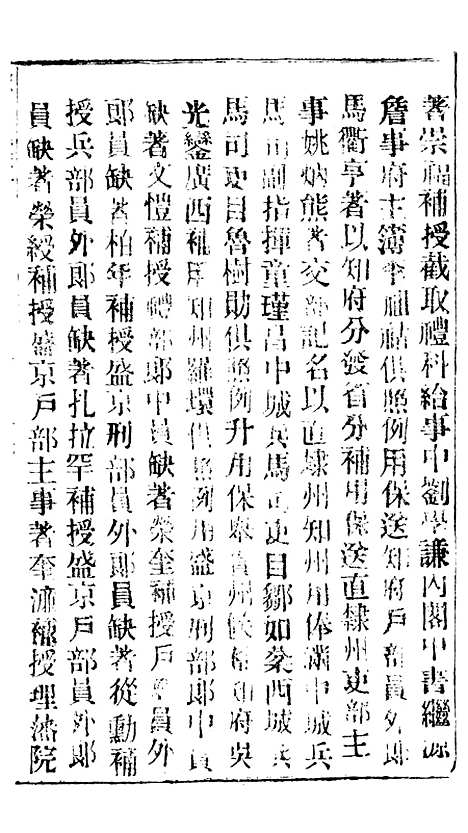 著崇福補授截取禮科給事中劉學謙內閣中書繼源
詹事府主簿李祖祜俱照例用保送知府戶部員外郎
馬衢亨著以知府分發省分補用保送直隸州吏部主
事姚炳熊著交部記名以直隸州知州用俸滿中城兵
馬司副指揮童瑾呂中城兵馬司吏目鄒如棻西城兵
馬司吏目魯樹勛俱照例升用保舉貴州候補知府吳
光鑾廣西補用知州羅環俱照例用盛京刑部郎中員
缺著文愷補授禮部郎中員缺著榮奎補授戶部員外
郎員缺著柏年補授盛京刑部員外郎員缺著從勳補
授兵部員外郎員缺著扎拉罕補授盛京戶部員外郎
員缺著榮綬補授盛京戶部主事著奎沛補授理藩院